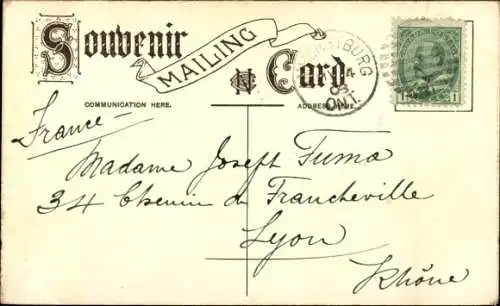 Souvenir
MAILING
Card
BURG
ONT.
COMMUNICATION HERE.
ADDRESS HERE.
France
Madame Joseph Fuma
34 Chemin de Francheville
Lyon
Rhône
1 1